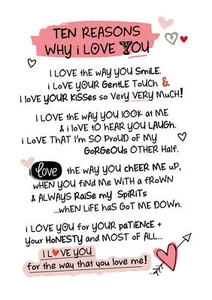 TEN REASONS
WHY i LOVE YOU
I LOVE THE WAY YOU SMiLE.
i LOVE YOUR GENTLE TOUCH &
I LOVE YOUR KiSSes so Very VERY MucH!
I LOVE THE WAY YOU LOOK AT ME
& i LOVE TO HEAR YOU LAUGH.
i LOVE THAT I'M SO PROUD OF MY
GORGEOUS OTHER HALF.
i love THE WAY YOU CHEER ME UP,
WHEN YOU FiND ME WiTH A FROWN
& ALWAYS RAISE MY SPiRiTS
...WHEN LiFE HAS GOT ME DOWN.
i LOVE YOU FOR YOUR PATIENCE +
YOUR HONESTY AND MOST OF ALL...
I LOVE YOU
for the way that you love me!